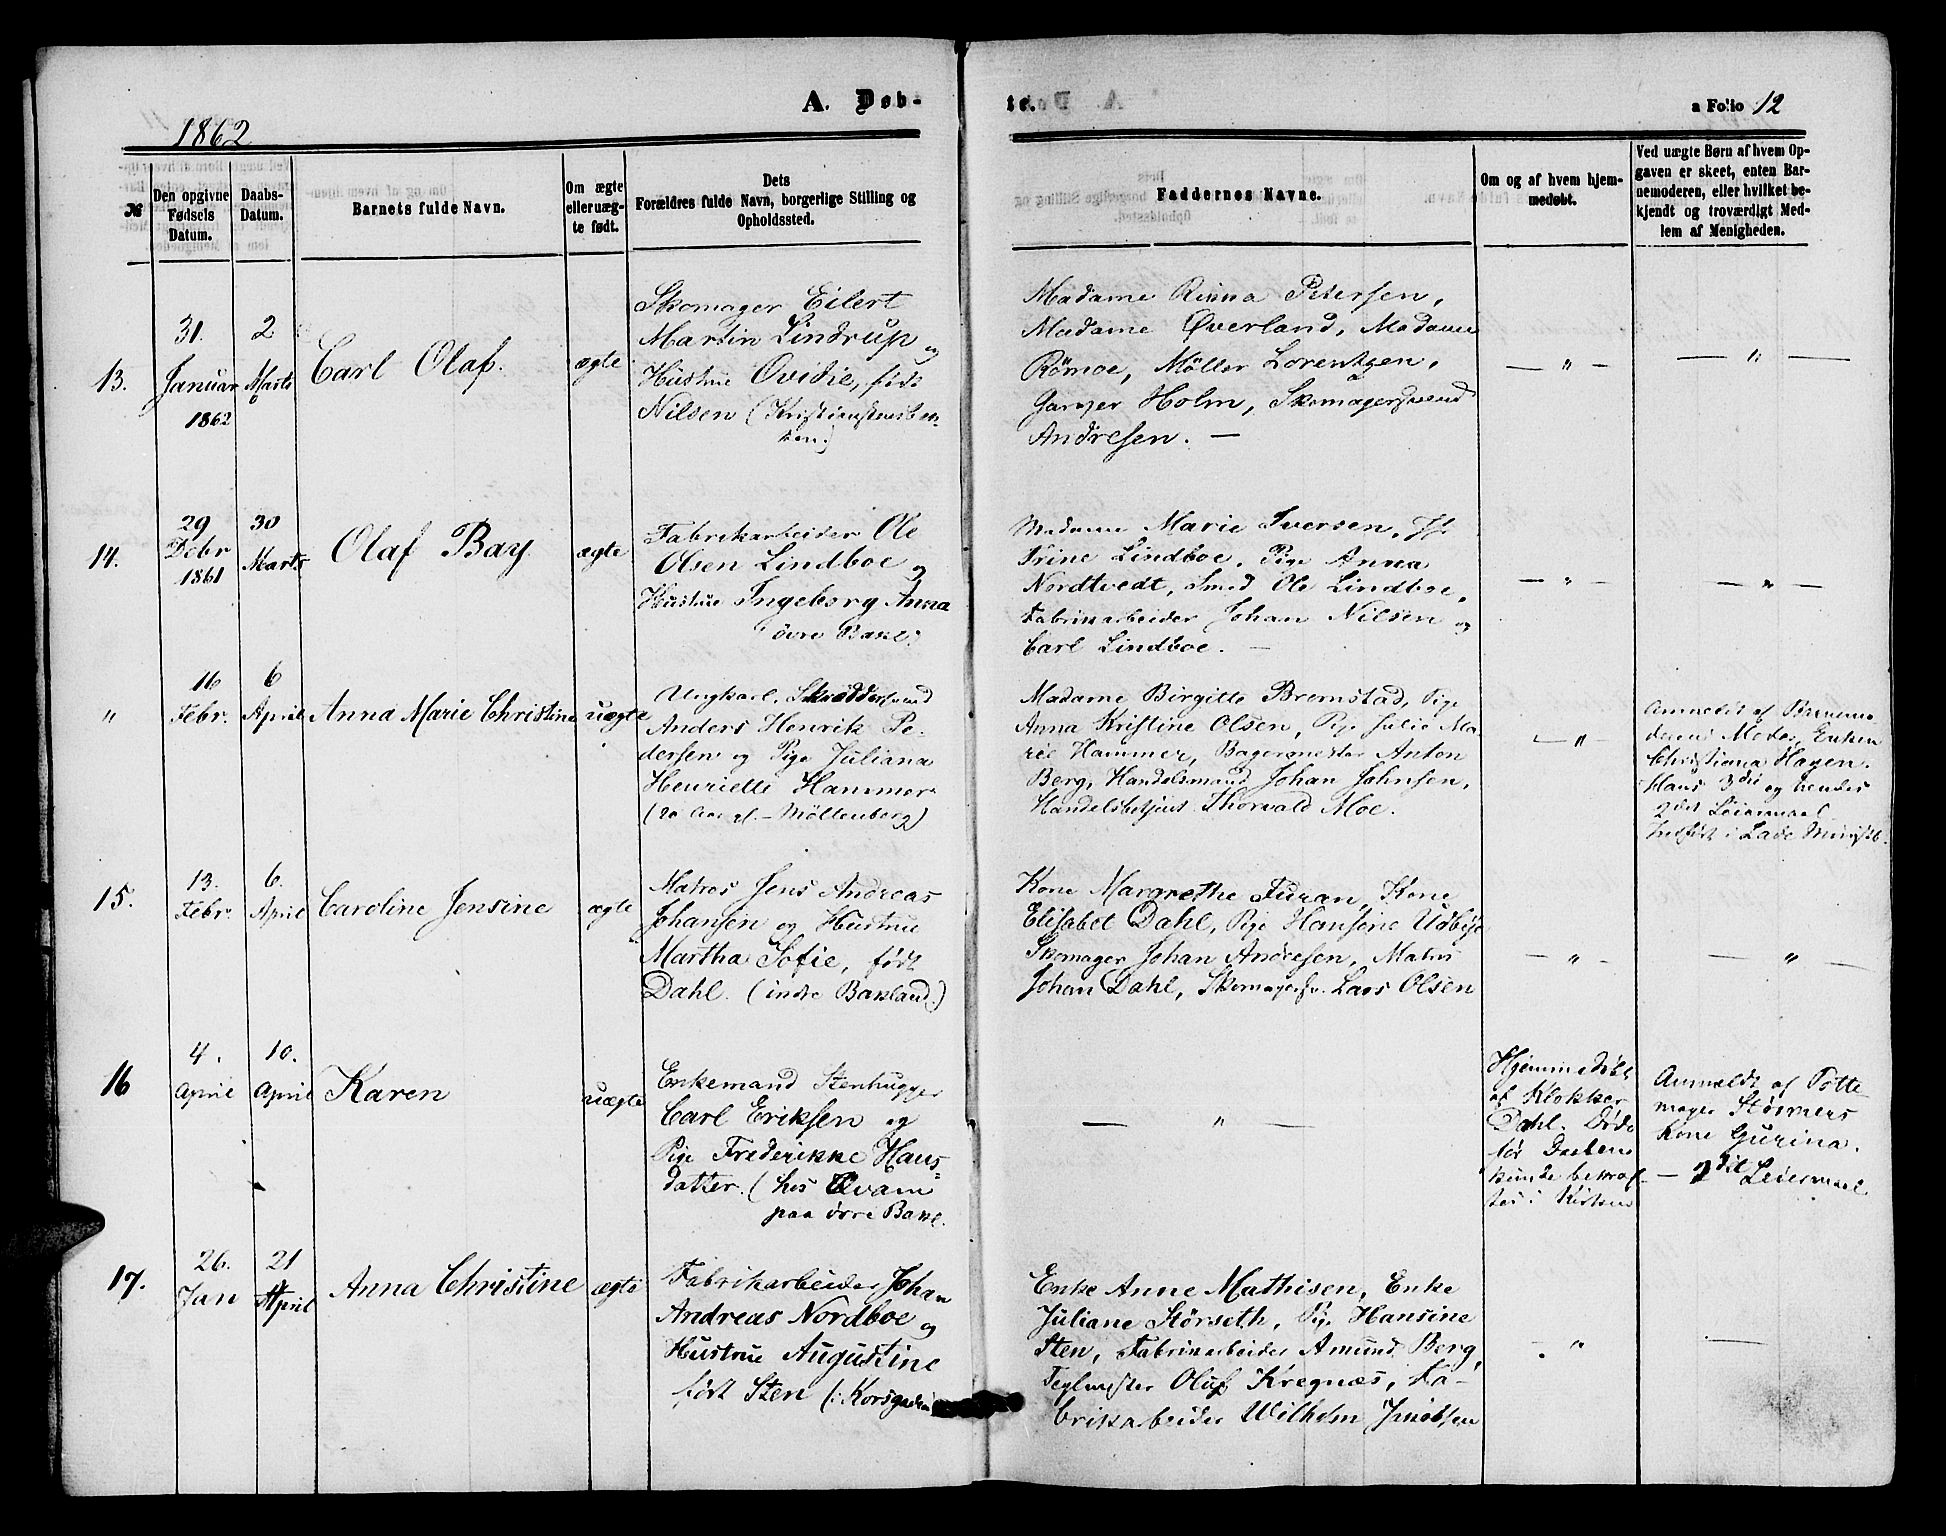 A. Døb-
te.
a Folio 12
1862
№
Den opgivne
Fødsels
Datum.
Daabs-
Datum.
Barnets fulde Navn.
Om ægte
eller uæg-
te født.
Dets
Forældres fulde Navn, borgerlige Stilling og
Opholdssted.
Faddernes Navne.
Om og af hvem hjem-
medøbt.
Ved uægte Børn af hvem Op-
gaven er skeet, enten Bar-
nemoderen, eller hvilket be-
kjendt og troværdigt Med-
lem af Menigheden.
13.
31.
Januar
1862
2
Marts
Carl Olaf.
ægte
Skomager Eilert
Martin Lindrup og
Hustrue Ovidie, født
Nilsen (Kristianstensbak-
ken.)
Madame Rinna Petersen,
Madame Øverland, Madame
Rømoe, Møller Lorentzen,
Garver Holm, Skomagersvend
Andresen. —
— " —
— " —
14.
29
Debr
1861
30
Marts
Olaf Bay
ægte
Fabrikarbeider Ole
Olsen Lindboe og
Hustrue Ingeborg Anna
øvre Bakl.
Madame Marie Iversen, Jf.
Trine Lindboe, Pige Anna
Nordtvedt, Smed Ole Lindboe,
Fabrikarbeider Johan Nilsen og
Carl Lindboe. —
— " —
— " —
"
16
Febr.
6
April
Anna Marie Christine
uægte
Ungkarl, Skræddersvend
Anders Henrik Pe-
dersen og Pige Juliana
Henriette Hammer
(20 Aar gl. – Möllenberg)
Madame Birgitte Bromstad, Pige
Anna Kristine Olsen, Pige Julie Ma-
rie Hammer, Bagermester Anton
Berg, Handelsmand Johan Johnsen,
Handelsbetjent Thorvald Moe.
— " —
Anmeldt af Barnemo-
derens Moder, Enken
Christiana Hagen.
Hans 3die og hendes
2det Leiermaal
Indført i Lade Ministb.
15.
13.
Febr.
6.
April
Caroline Jensine
ægte
Matros Jens Andreas
Johansen og Hustrue
Martha Sofie, født
Dahl. (indre Bakland.)
Kone Margrethe Furan, Kone
Elisabet Dahl, Pige Hansine Udbye
Skomager Johan Andresen, Matros
Johan Dahl, Skomagersv. Lars Olsen
— " —
— " —
16
4.
April
10.
April
Karen
uægte
Enkemand Stenhugger
Carl Eriksen og
Pige Frederikke Hans-
datter. (hos Qvam
paa øvre Bakl.
— " —
Hjemmedøbt
af Klokker
Dahl. Døde
før Daaben
kunde bekræf-
tes i Kirken
Anmeldt af Potte-
mager Størmers
Kone Gurina.
— 2det Leiermaal
17.
26.
Jan
21
April
Anna Christine
ægte
Fabrikarbeider Johan
Andreas Nordboe og
Hustrue Augustine
født Sten (: Korsgaden
Enke Anne Mathisen, Enke
Juliane Störseth, Pige Hansine
Sten, Fabrikarbeider Amund Berg,
Teglmester Oluf Kregnæs, Fa-
brikarbeider Wilhelm Jacobsen
. "
—